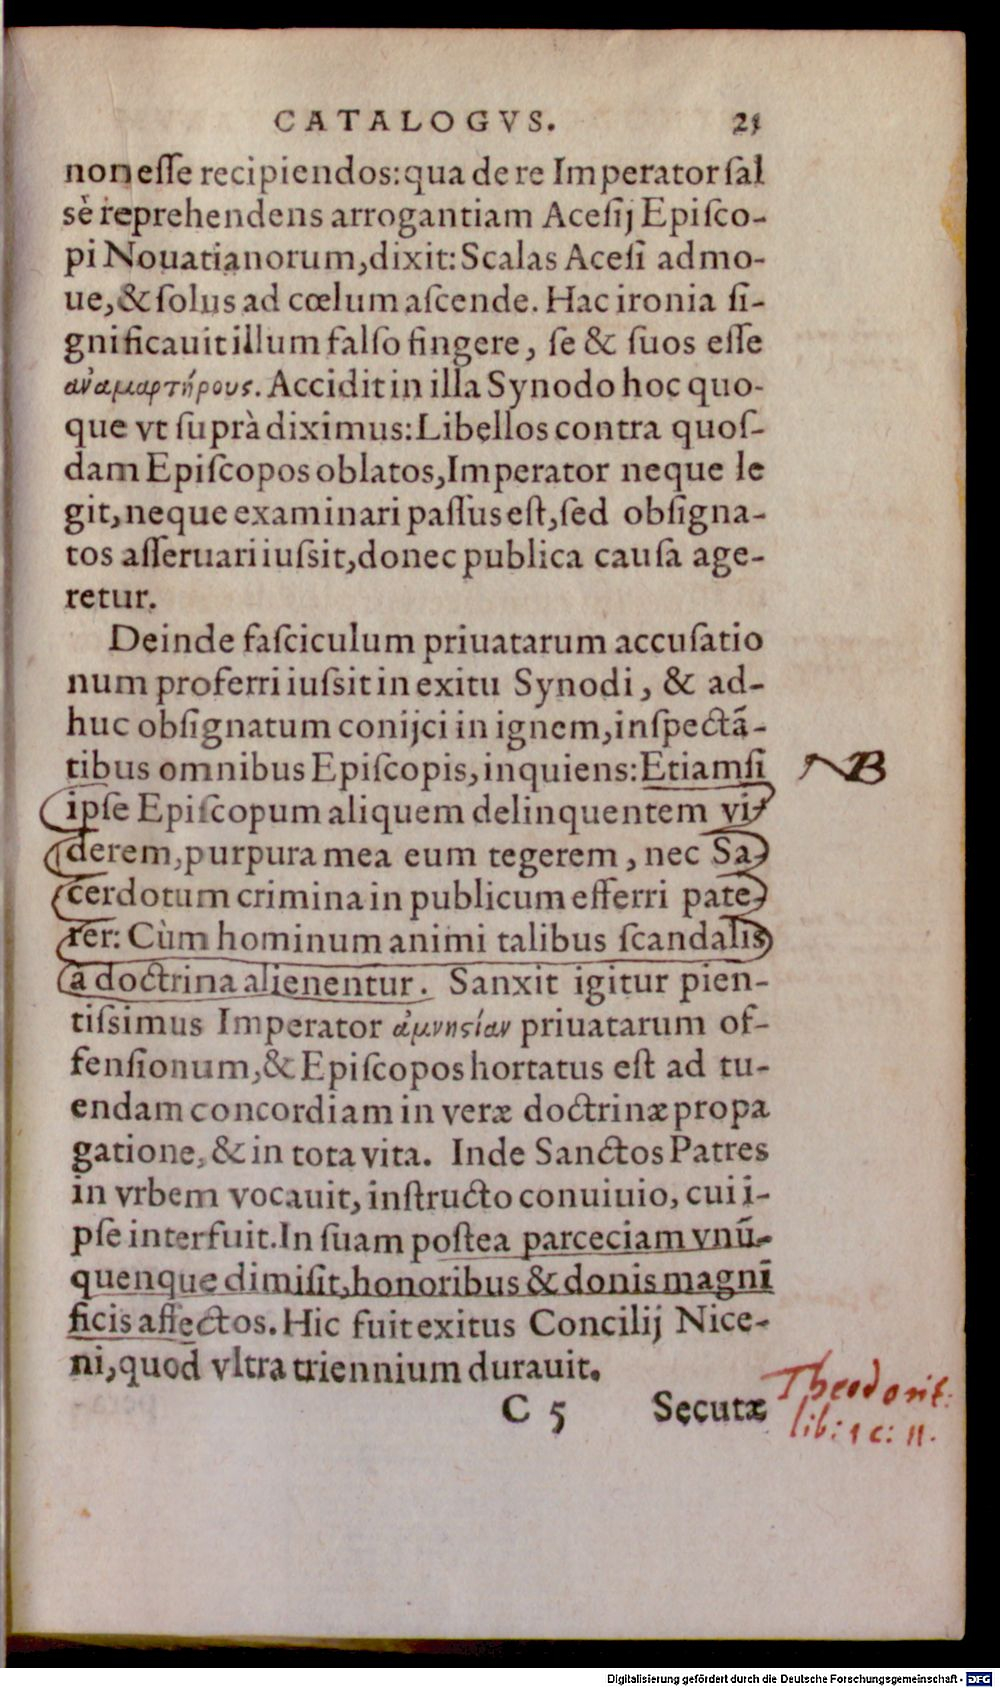 CATALOGVS. 21
non eſſe recipiendos: qua de re Imperator ſal
sè reprehendens arrogantiam Aceſij Epiſco-
pi Nouatianorum, dixit: Scalas Aceſi admo-
ue, & ſolus ad cœlum aſcende. Hac ironia ſi-
gnificauit illum falſo fingere, ſe & ſuos eſſe
ἀναμαρτήρους. Accidit in illa Synodo hoc quo-
que vt ſuprà diximus: Libellos contra quoſ-
dam Epiſcopos oblatos, Imperator neque le
git, neque examinari paſſus eſt, ſed obſigna-
tos aſſeruari iuſsit, donec publica cauſa age-
retur.
Deinde faſciculum priuatarum accuſatio
num proferri iuſsit in exitu Synodi, & ad-
huc obſignatum conijci in ignem, inſpectā-
tibus omnibus Epiſcopis, inquiens: Etiamſi
NB
ipſe Epiſcopum aliquem delinquentem vi-
derem, purpura mea eum tegerem, nec Sa-
cerdotum crimina in publicum efferri pate-
rer: Cùm hominum animi talibus ſcandalis
a doctrina alienentur. Sanxit igitur pien-
tiſsimus Imperator ἀμνηστίαν priuatarum of-
fenſionum, & Epiſcopos hortatus eſt ad tu-
endam concordiam in veræ doctrinæ propa
gatione, & in tota vita. Inde Sanctos Patres
in vrbem vocauit, inſtructo conuiuio, cui i-
pſe interfuit. In ſuam poſtea parceciam vnū-
quenque dimiſit, honoribus & donis magni
ficis affectos. Hic fuit exitus Concilij Nice-
ni, quod vltra triennium durauit.
C 5 Secutæ
Theodorit:
lib: 1 c: 11.
Digitalisierung gefördert durch die Deutsche Forschungsgemeinschaft - DFG